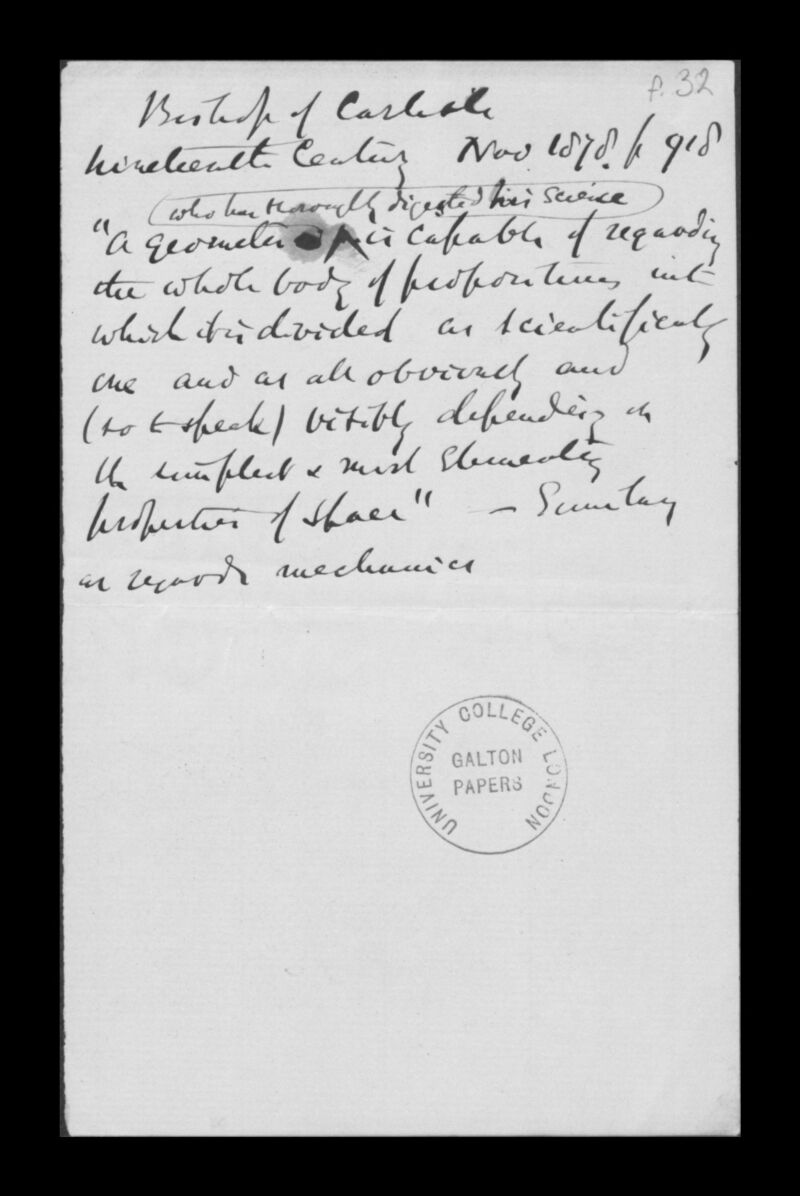 f. 32
Bishop of Carlisle
Nineteenth Century Nov 1878. p 918
who has thoroughly digested his science
"A geometer is capable of regarding
the whole body of propositions into
which it is divided as scientifically
one and as all obviously and
(so to speak) visibly depending on
the simplest & most elementary
properties of space" – Similarly
as regards mechanics
UNIVERSITY COLLEGE LONDON
GALTON
PAPERS